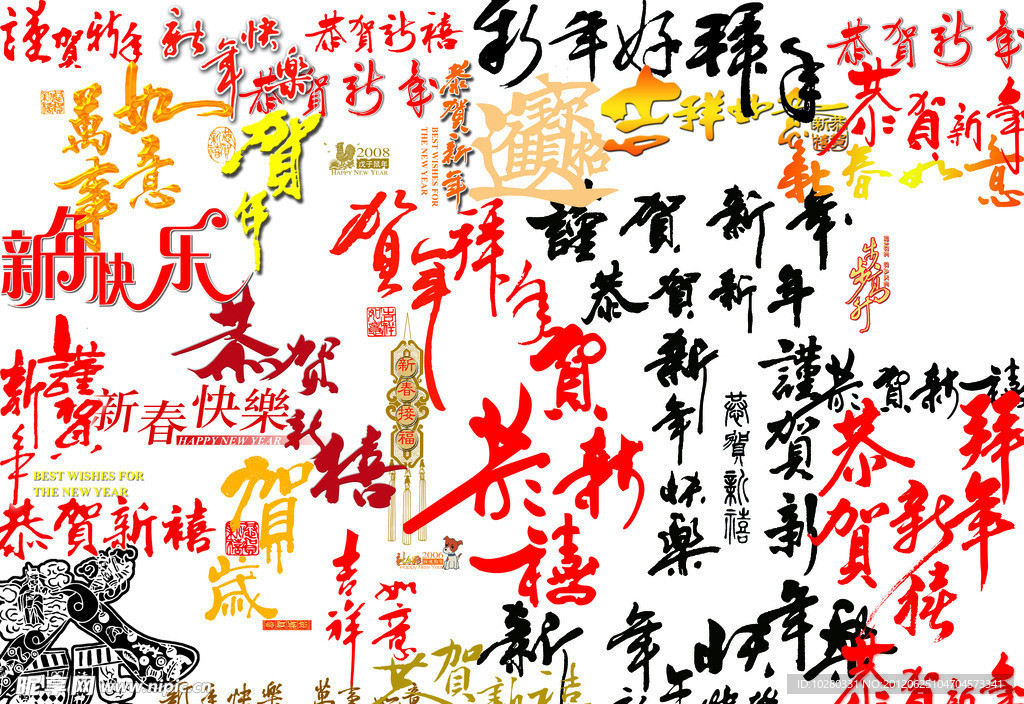 謹賀新年
新年快樂
恭賀新禧
新年好
拜年
恭賀新年
恭賀新年
萬事如意
賀年
2008
戊子鼠年
HAPPY NEW YEAR
恭賀新年
BEST WISHES FOR
THE NEW YEAR
吉祥如意
恭賀新禧
新春如意
新年快乐
賀年
拜年
謹賀新年
恭賀新年
步步高升
恭賀新禧
吉祥如意
新春接福
謹賀新年
新春快樂
HAPPY NEW YEAR
BEST WISHES FOR
THE NEW YEAR
恭賀新禧
賀歲
恭賀新禧
新年快樂
恭賀新禧
謹賀新年
恭賀新禧
恭賀新禧
拜年
2006
吉祥如意
恭賀新禧
新年快樂
昵享网 www.nipic.cn
ID:10280331 NO:20120625104704573341